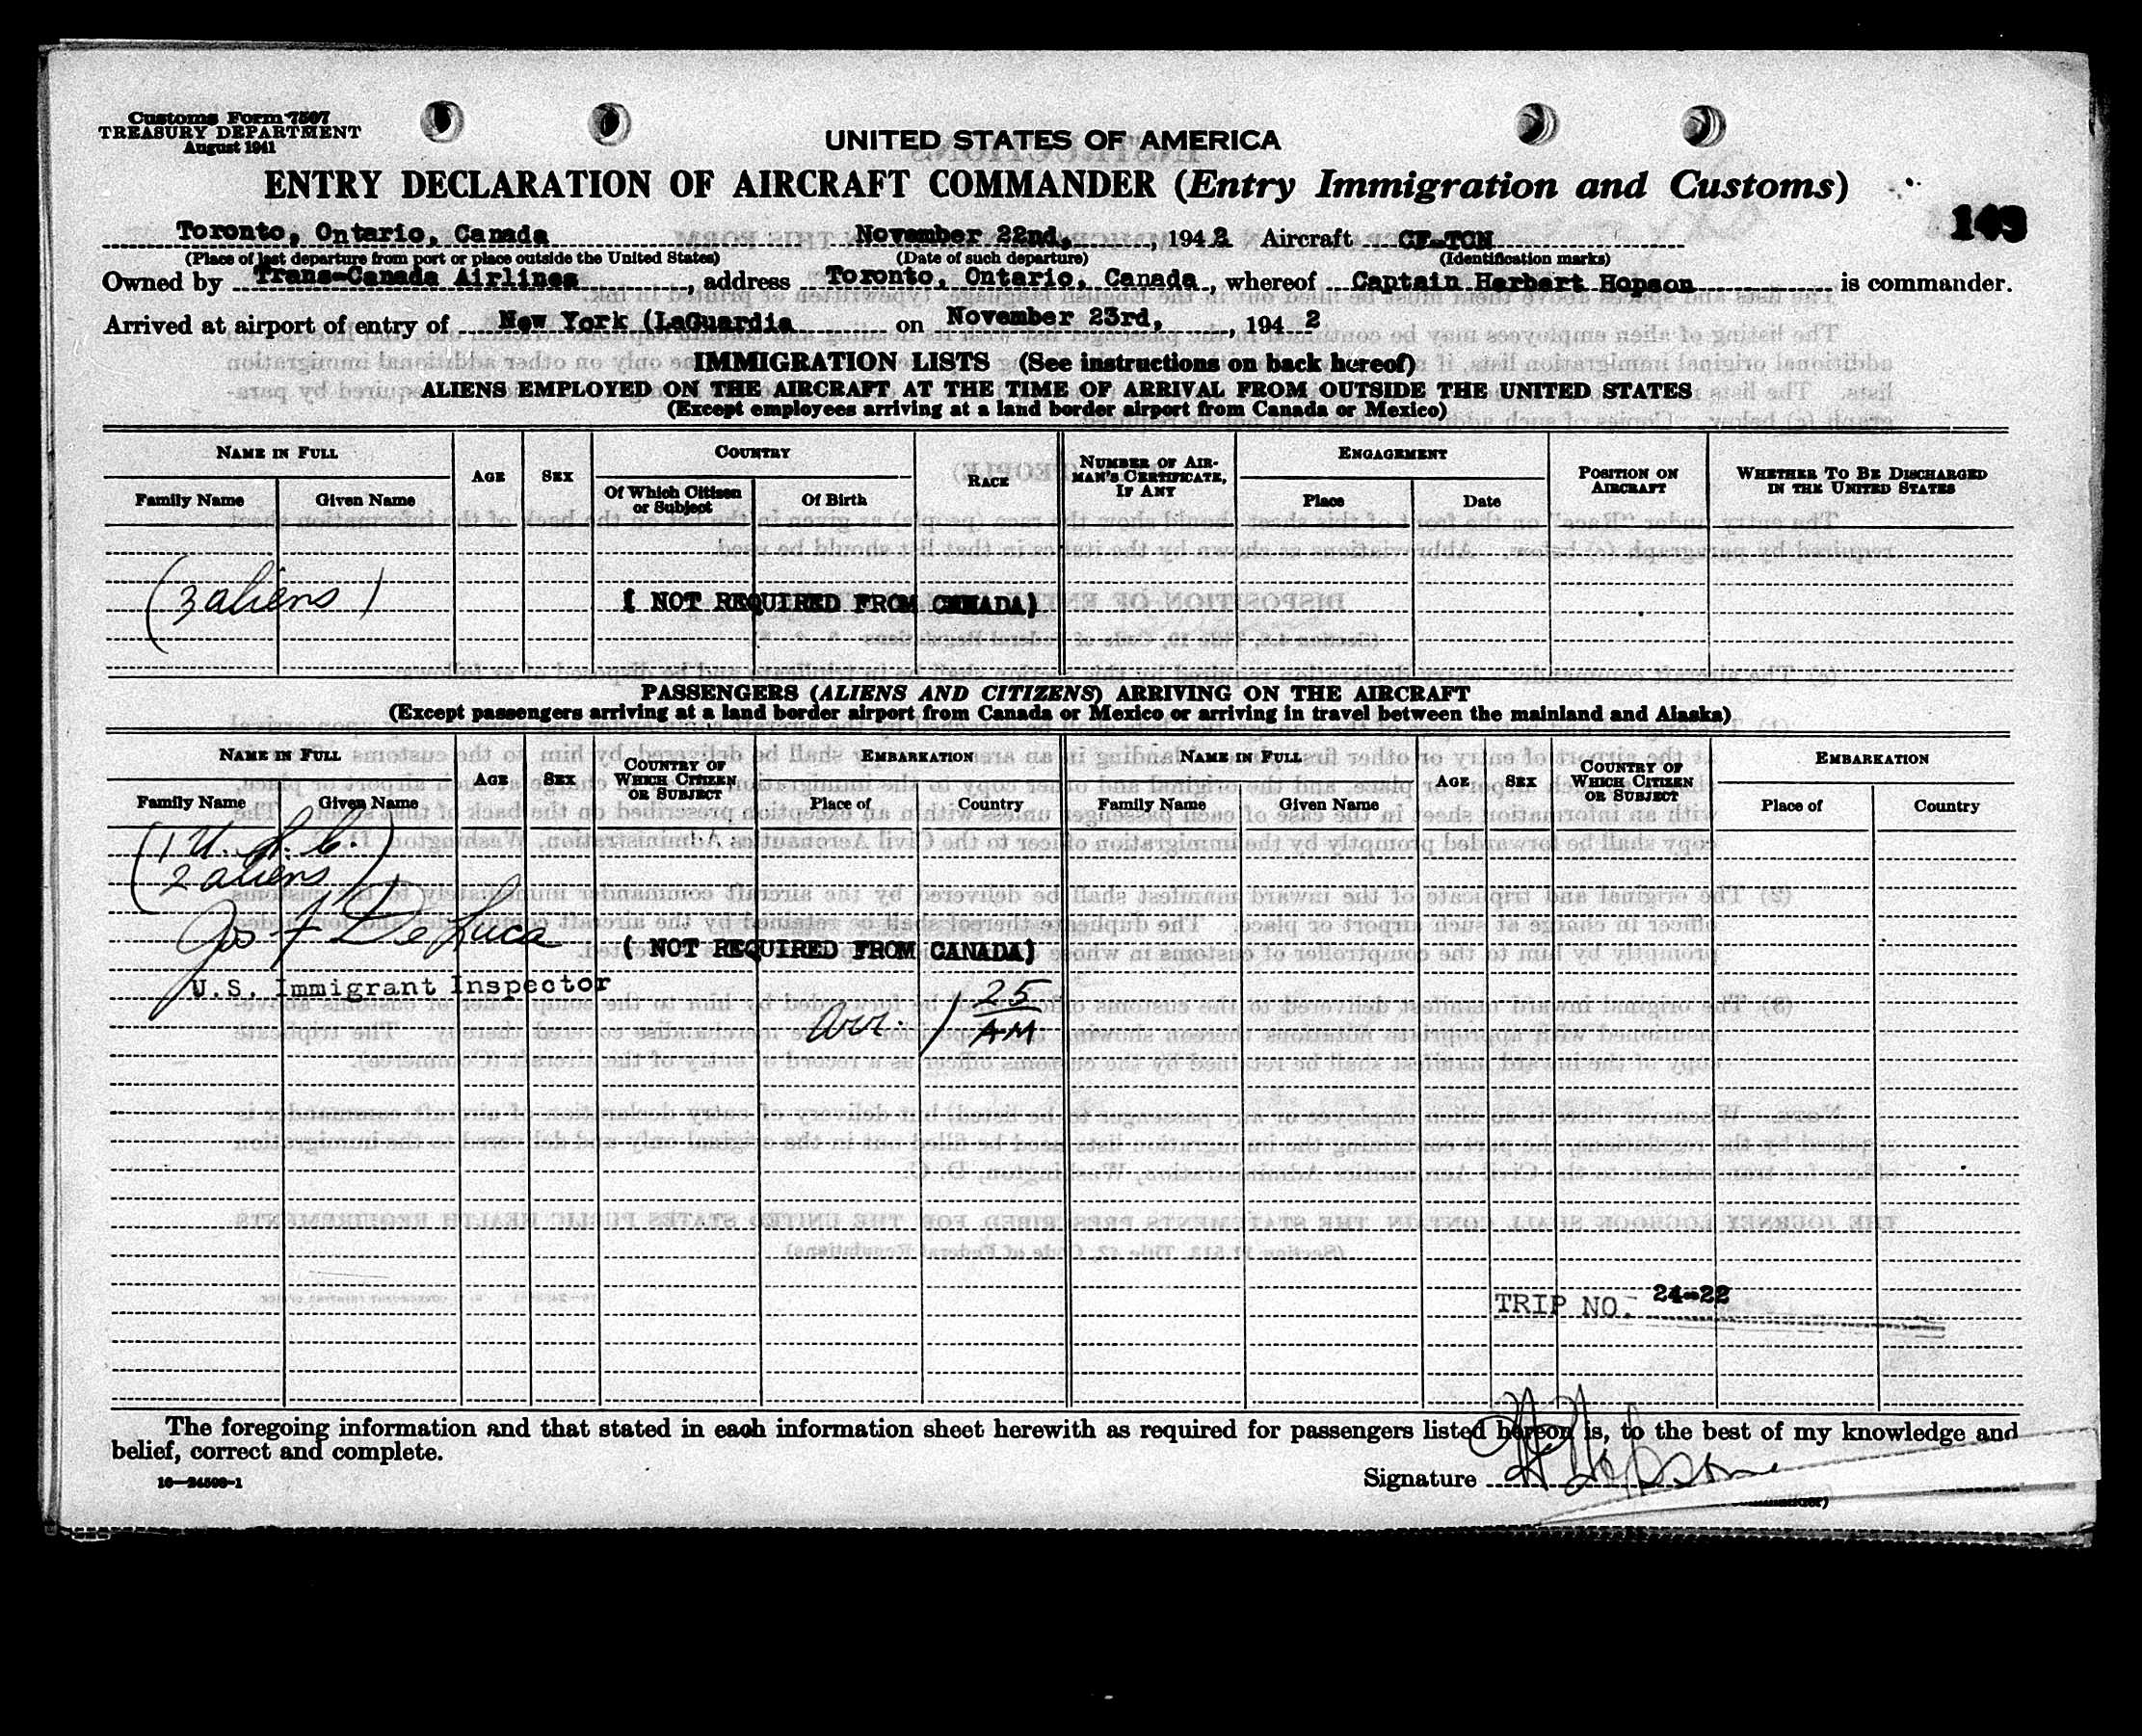 Customs Form 7507
TREASURY DEPARTMENT
August 1941
UNITED STATES OF AMERICA
ENTRY DECLARATION OF AIRCRAFT COMMANDER (Entry Immigration and Customs)
149
Toronto, Ontario, Canada November 22nd, , 1942 Aircraft CF-TCN
(Place of last departure from port or place outside the United States) (Date of such departure) (Identification marks)
Owned by Trans-Canada Airlines , address Toronto, Ontario, Canada , whereof Captain Herbert Hopson is commander.
Arrived at airport of entry of New York (LaGuardia on November 23rd, , 1942
IMMIGRATION LISTS (See instructions on back hereof)
ALIENS EMPLOYED ON THE AIRCRAFT AT THE TIME OF ARRIVAL FROM OUTSIDE THE UNITED STATES
(Except employees arriving at a land border airport from Canada or Mexico)
NAME IN FULL AGE SEX COUNTRY RACE NUMBER OF AIRMAN'S CERTIFICATE, IF ANY ENGAGEMENT POSITION ON AIRCRAFT WHETHER TO BE DISCHARGED IN THE UNITED STATES
Family Name Given Name Of Which Citizen or Subject Of Birth Place Date
(3 aliens) ( NOT REQUIRED FROM CANADA)
PASSENGERS (ALIENS AND CITIZENS) ARRIVING ON THE AIRCRAFT
(Except passengers arriving at a land border airport from Canada or Mexico or arriving in travel between the mainland and Alaska)
NAME IN FULL AGE SEX COUNTRY OF WHICH CITIZEN OR SUBJECT EMBARKATION NAME IN FULL AGE SEX COUNTRY OF WHICH CITIZEN OR SUBJECT EMBARKATION
Family Name Given Name Place of Country Family Name Given Name Place of Country
(1 U.S.C.
2 aliens)
Jos F DeLuca
( NOT REQUIRED FROM CANADA)
U.S. Immigrant Inspector
Arr. 1 25 AM
TRIP NO. 24-22
The foregoing information and that stated in each information sheet herewith as required for passengers listed hereon is, to the best of my knowledge and
belief, correct and complete.
16—24598-1
Signature H Hopson